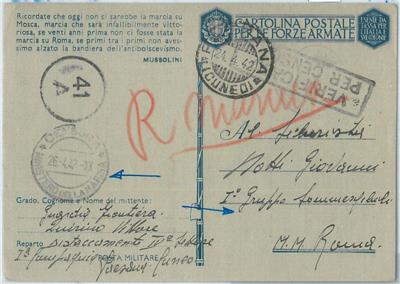 Ricordate che oggi non ci sarebbe la marcia su
Mosca, marcia che sarà infallibilmente vitto-
riosa, se venti anni prima non ci fosse stata
la marcia su Roma, se primi tra i primi non aves-
simo alzato la bandiera dell'antibolscevismo.
MUSSOLINI
CARTOLINA POSTALE
PER LE FORZE ARMATE
ESENTE DA
TASSA PER
L'ITALIA E
24.4.42
(CUNEO)
VERIFICATO
PER CENS
41
A
R
26.4.42-XX
MINISTERO DELLA MARINA
Al
Notti Giovanni
I° Gruppo Sommergibili
M.M. Roma
Grado, Cognome e Nome del mittente:
Guardia Frontiera
Quirino
Reparto Distaccamento Settore
POSTA MILITARE
Cuneo